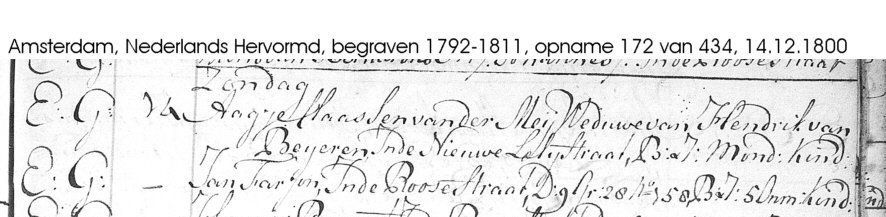 Amsterdam, Nederlands Hervormd, begraven 1792-1811, opname 172 van 434, 14.12.1800
E: G: in de Roosestraat
Zondag
E: G: 14 Aagje Klaassen van der Meij Weduwe van Hendrik van
Beyeren, In de Nieuwe Lelystraat, B: J: Mond: Kind:
E: G: — Jan In de Roosestraat, D: 9 Gr: 28 No 158 B: J: 5 Onm: Kind: